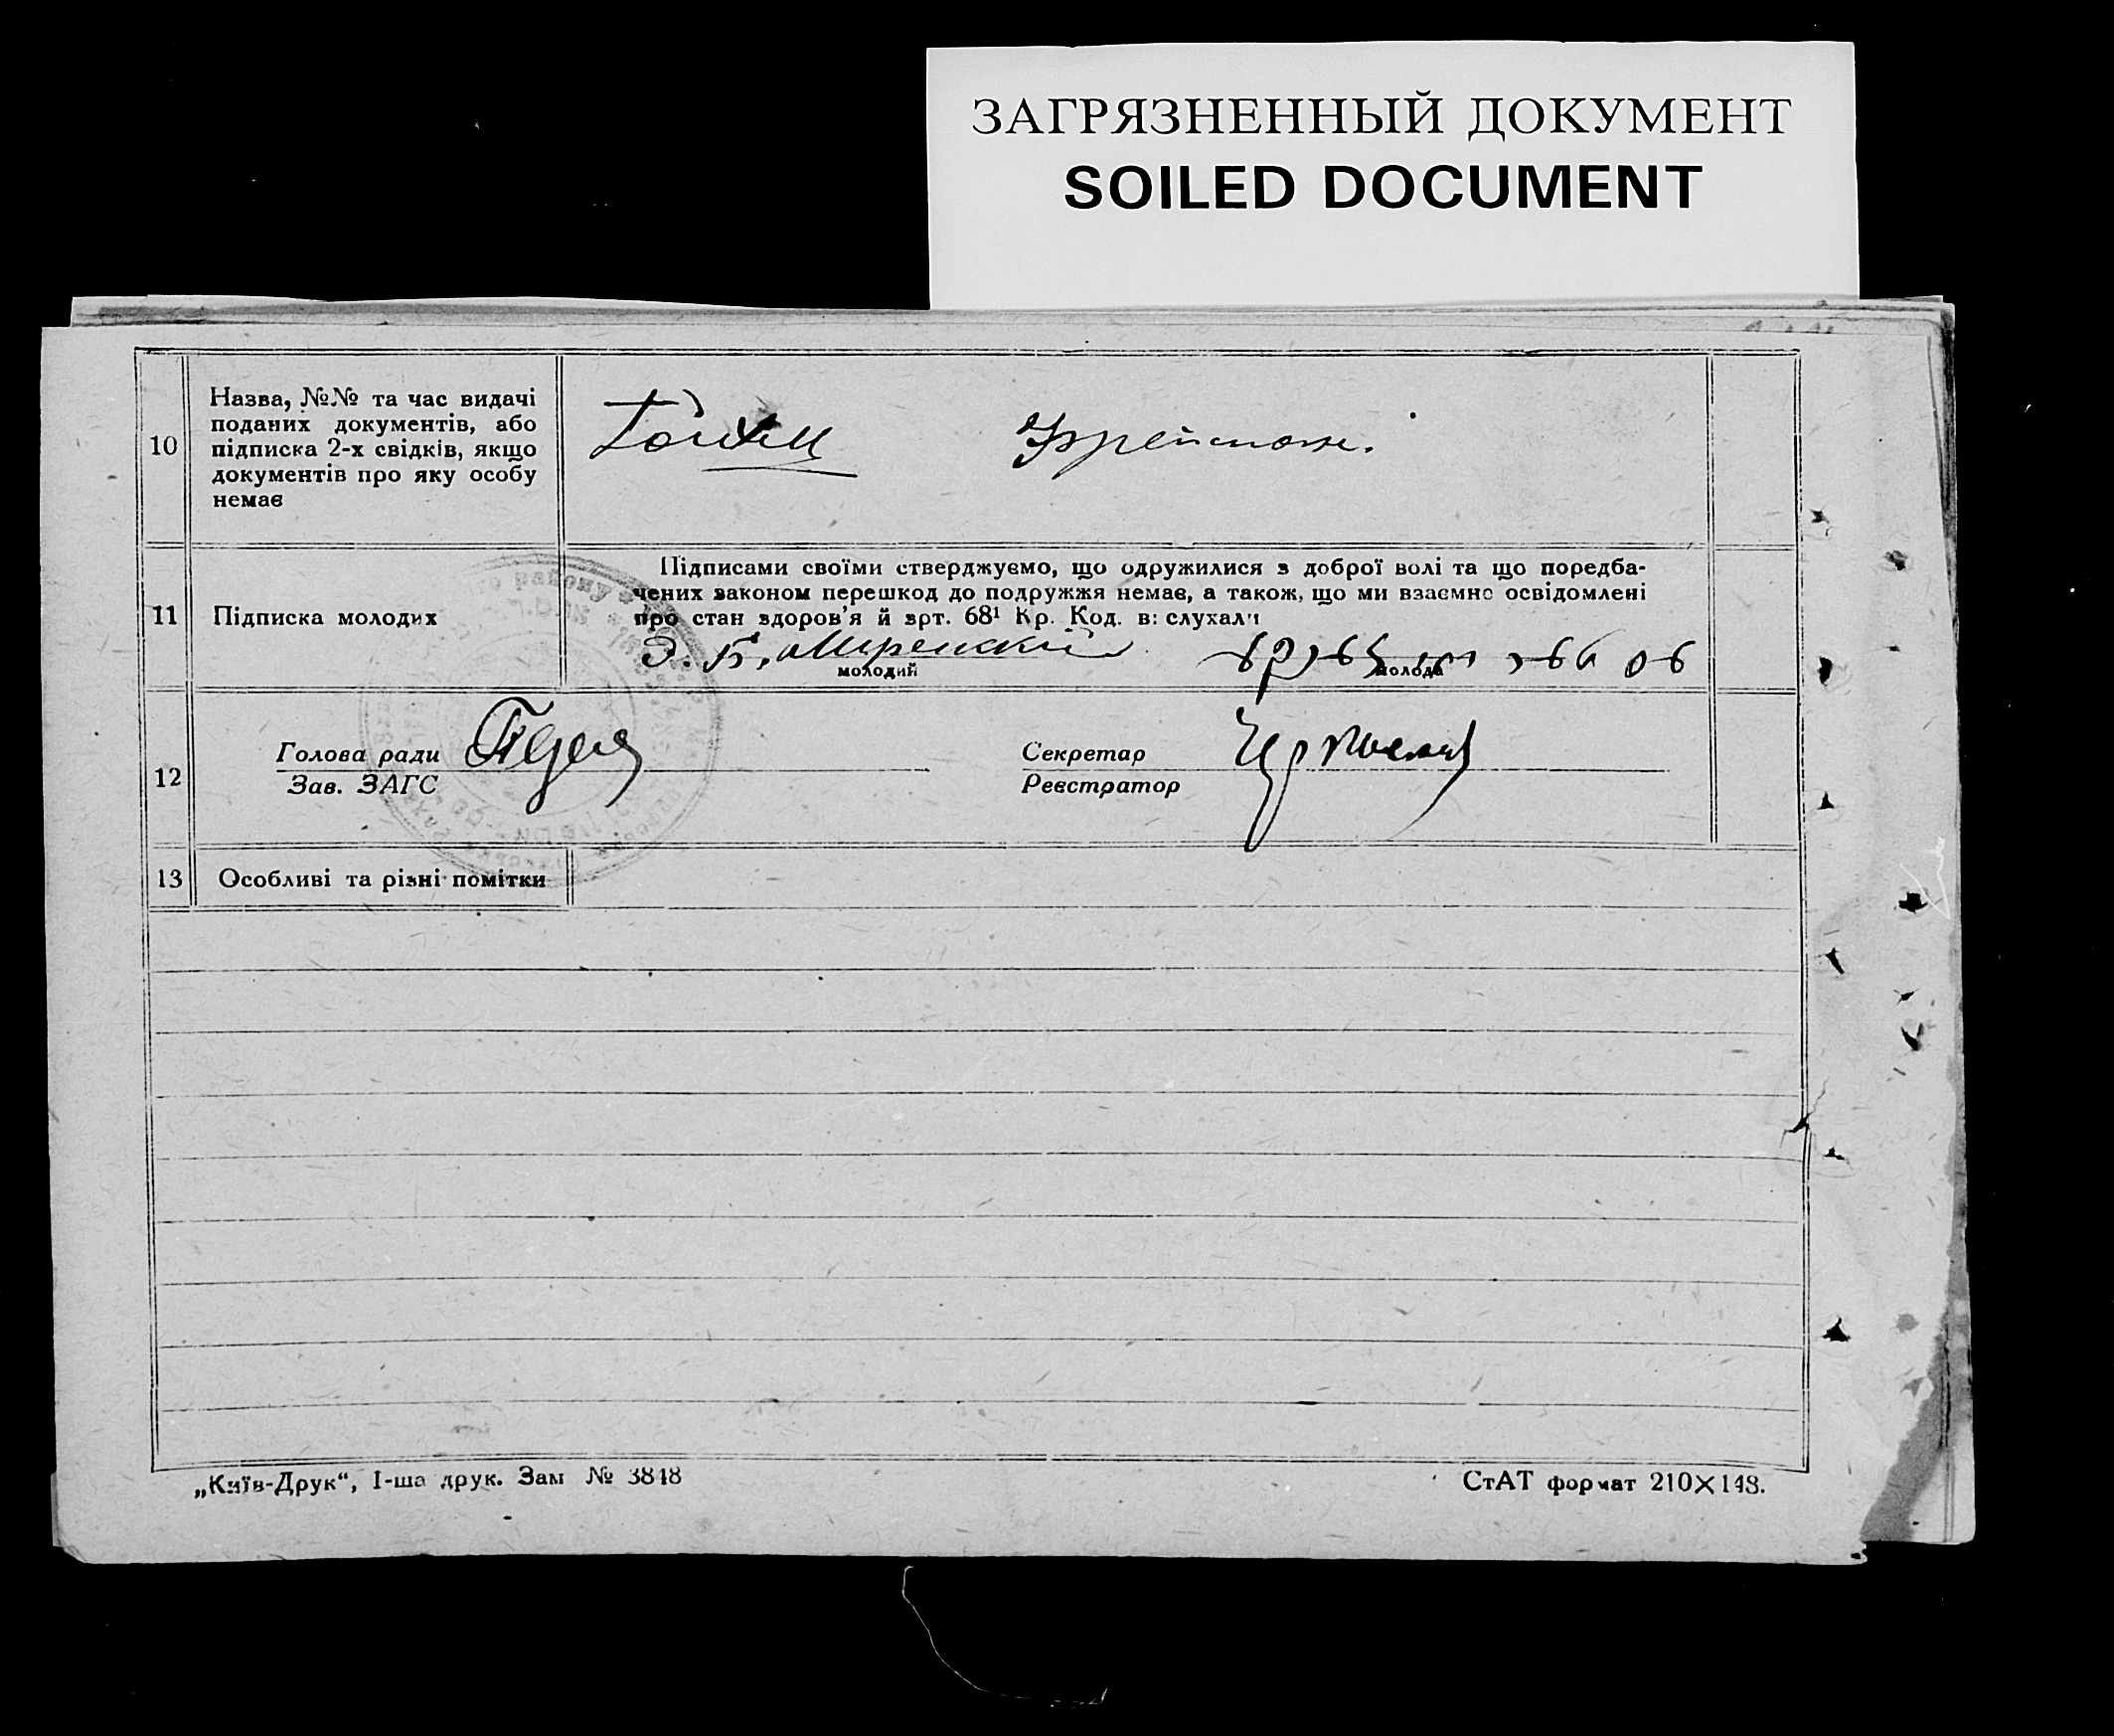 ЗАГРЯЗНЕННЫЙ ДОКУМЕНТ
SOILED DOCUMENT
10
Назва, №№ та час видачі
поданих документів, або
підписка 2-х свідків, якщо
документів про яку особу
немає
11
Підписка молодих
Підписами своїми стверджуємо, що одружилися з доброї волі та що передба-
чених законом перешкод до подружжя немає, а також, що ми взаємно освідомлені
про стан здоров'я й арт. 68¹ Кр. Код. вислухали
Э. Б.
молодий
молода
12
Голова ради
Зав. ЗАГС
Секретар
Реєстратор
13
Особливі та різні помітки
„Київ-Друк“, І-ша друк. Зам № 3848
СтАТ формат 210×148.